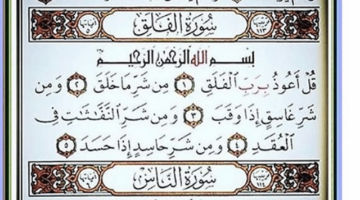 سُورَةُ الفَلَقِ
بِسْمِ اللهِ الرَّحْمٰنِ الرَّحِيمِ
قُلْ أَعُوذُ بِرَبِّ الْفَلَقِ ١ مِن شَرِّ مَا خَلَقَ ٢ وَمِن
شَرِّ غَاسِقٍ إِذَا وَقَبَ ٣ وَمِن شَرِّ النَّفَّاثَاتِ فِي
الْعُقَدِ ٤ وَمِن شَرِّ حَاسِدٍ إِذَا حَسَدَ ٥
سُورَةُ النَّاسِ